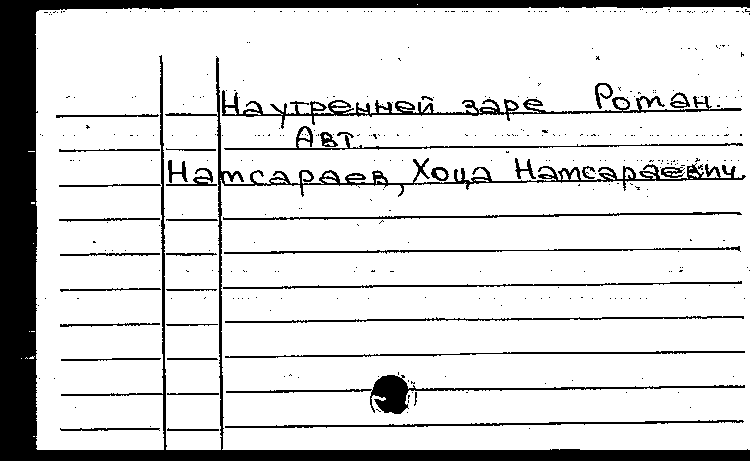 На утренней заре Роман.
Авт.:
Намсараев, Хоца Намсараевич.